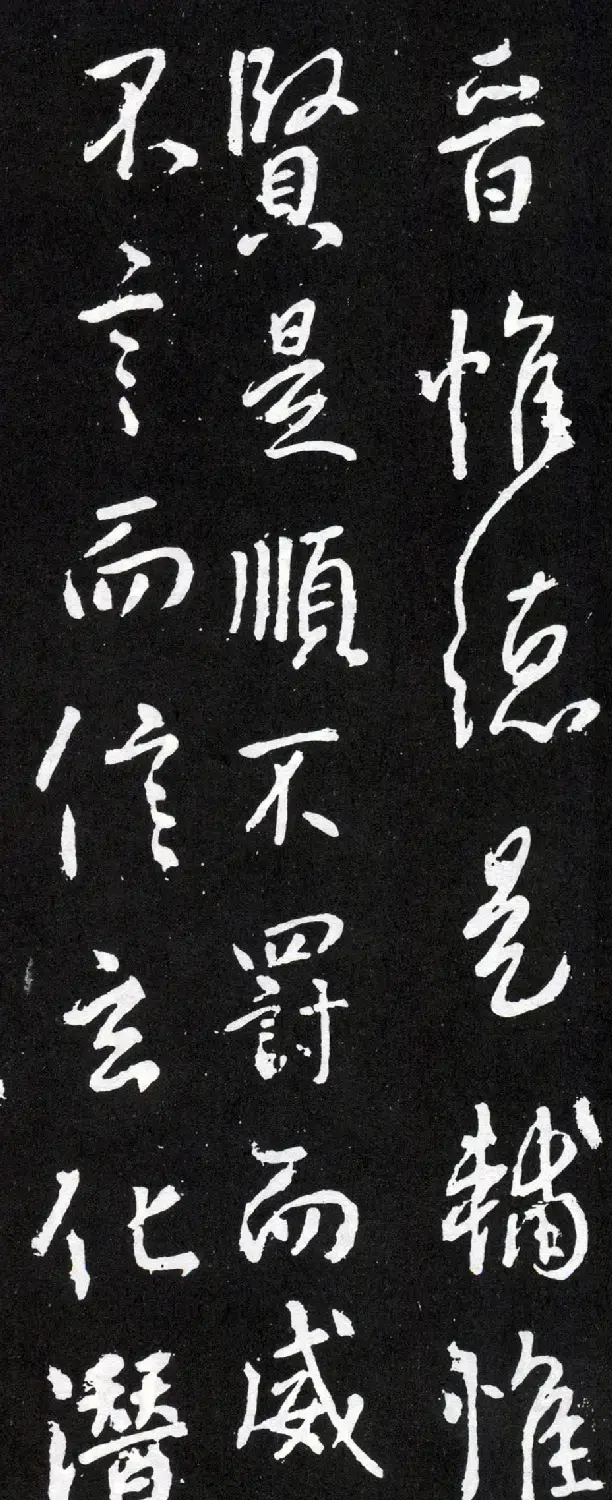 晉惟德是輔惟
賢是順不罰而威
不言而信玄化潛